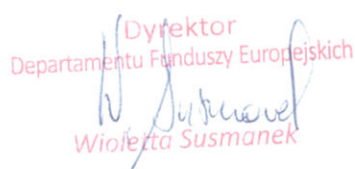 Dyrektor
Departamentu Funduszy Europejskich
W. Susmanek
Wioletta Susmanek